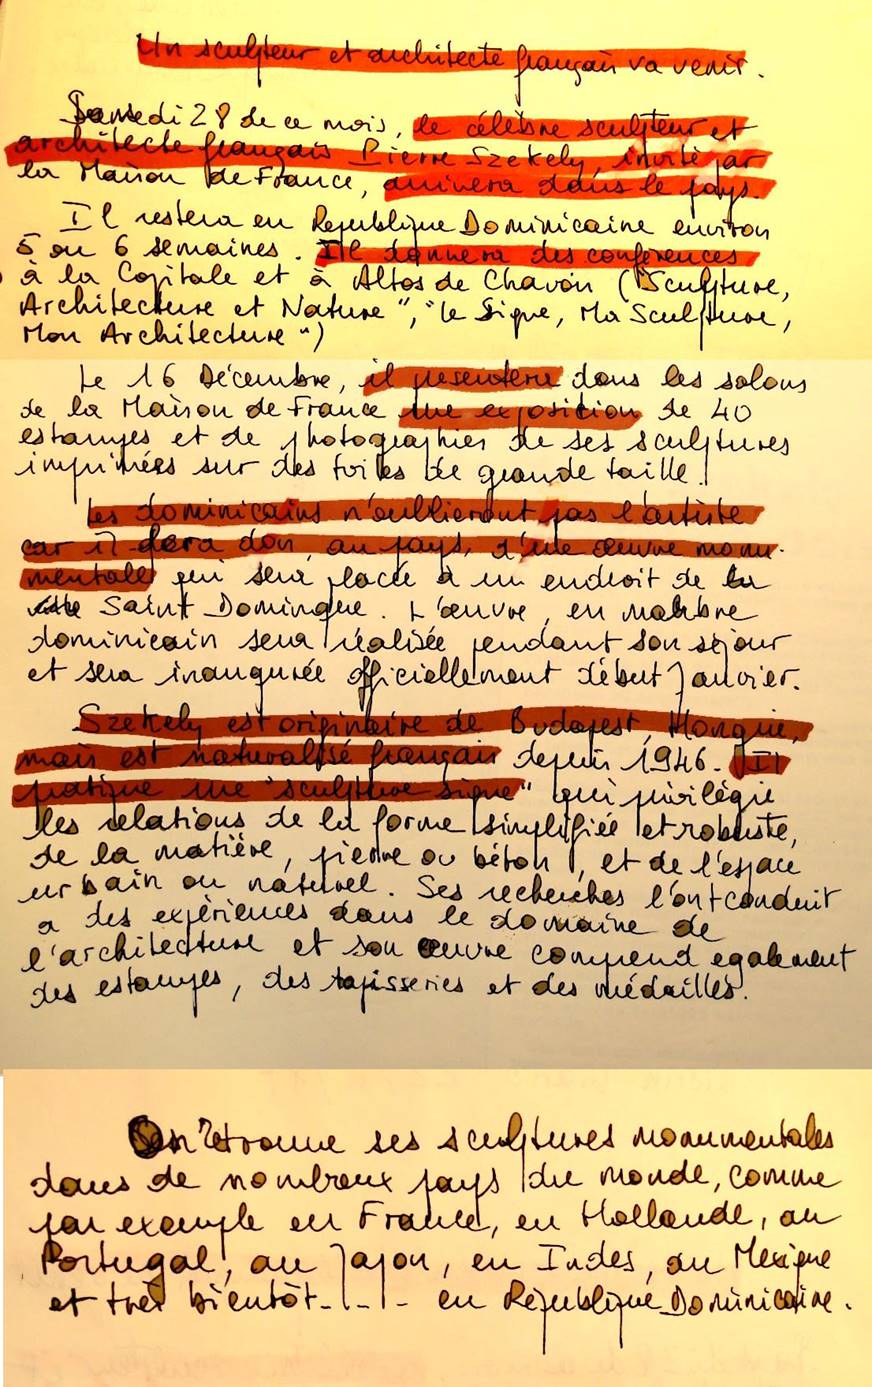 Un sculpteur et architecte français va venir.
Samedi 28 de ce mois, le célèbre sculpteur et
architecte français Pierre Szekely, invité par
la Maison de France, arrivera dans le pays.
Il restera en République Dominicaine environ
5 ou 6 semaines. Il donnera des conférences
à la Capitale et à Altos de Chavón ("Sculpture,
Architecture et Nature", "Le Signe, Ma Sculpture,
Mon Architecture")
Le 16 Décembre, il présentera dans les salons
de la Maison de France une exposition de 40
estampes et de photographies de ses sculptures
imprimées sur des toiles de grande taille.
Les dominicains n'oublieront pas l'artiste
car il fera don, au pays, d'une œuvre monu-
mentale qui sera placée à un endroit de la
Saint Domingue. L'œuvre, en marbre
dominicain sera réalisée pendant son séjour
et sera inaugurée officiellement début Janvier.
Szekely est originaire de Budapest, Hongrie,
mais est naturalisé français depuis 1946. Il
pratique une "sculpture signe" qui privilégie
les relations de la forme simplifiée et robuste,
de la matière, pierre ou béton, et de l'espace
urbain ou naturel. Ses recherches l'ont conduit
a des expériences dans le domaine de
l'architecture et son œuvre comprend egalement
des estampes, des tapisseries et des médailles.
On retrouve ses sculptures monumentales
dans de nombreux pays du monde, comme
par exemple en France, en Hollande, au
Portugal, au Japon, en Indes, au Mexique
et très bientôt.... en République Dominicaine.